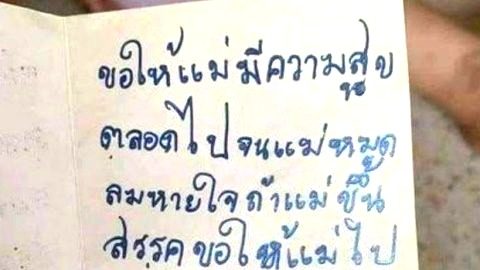 ขอให้แม่มีความสุข
ตลอดไปจนแม่หมด
ลมหายใจถ้าแม่ขึ้น
สรรคขอให้แม่ไป